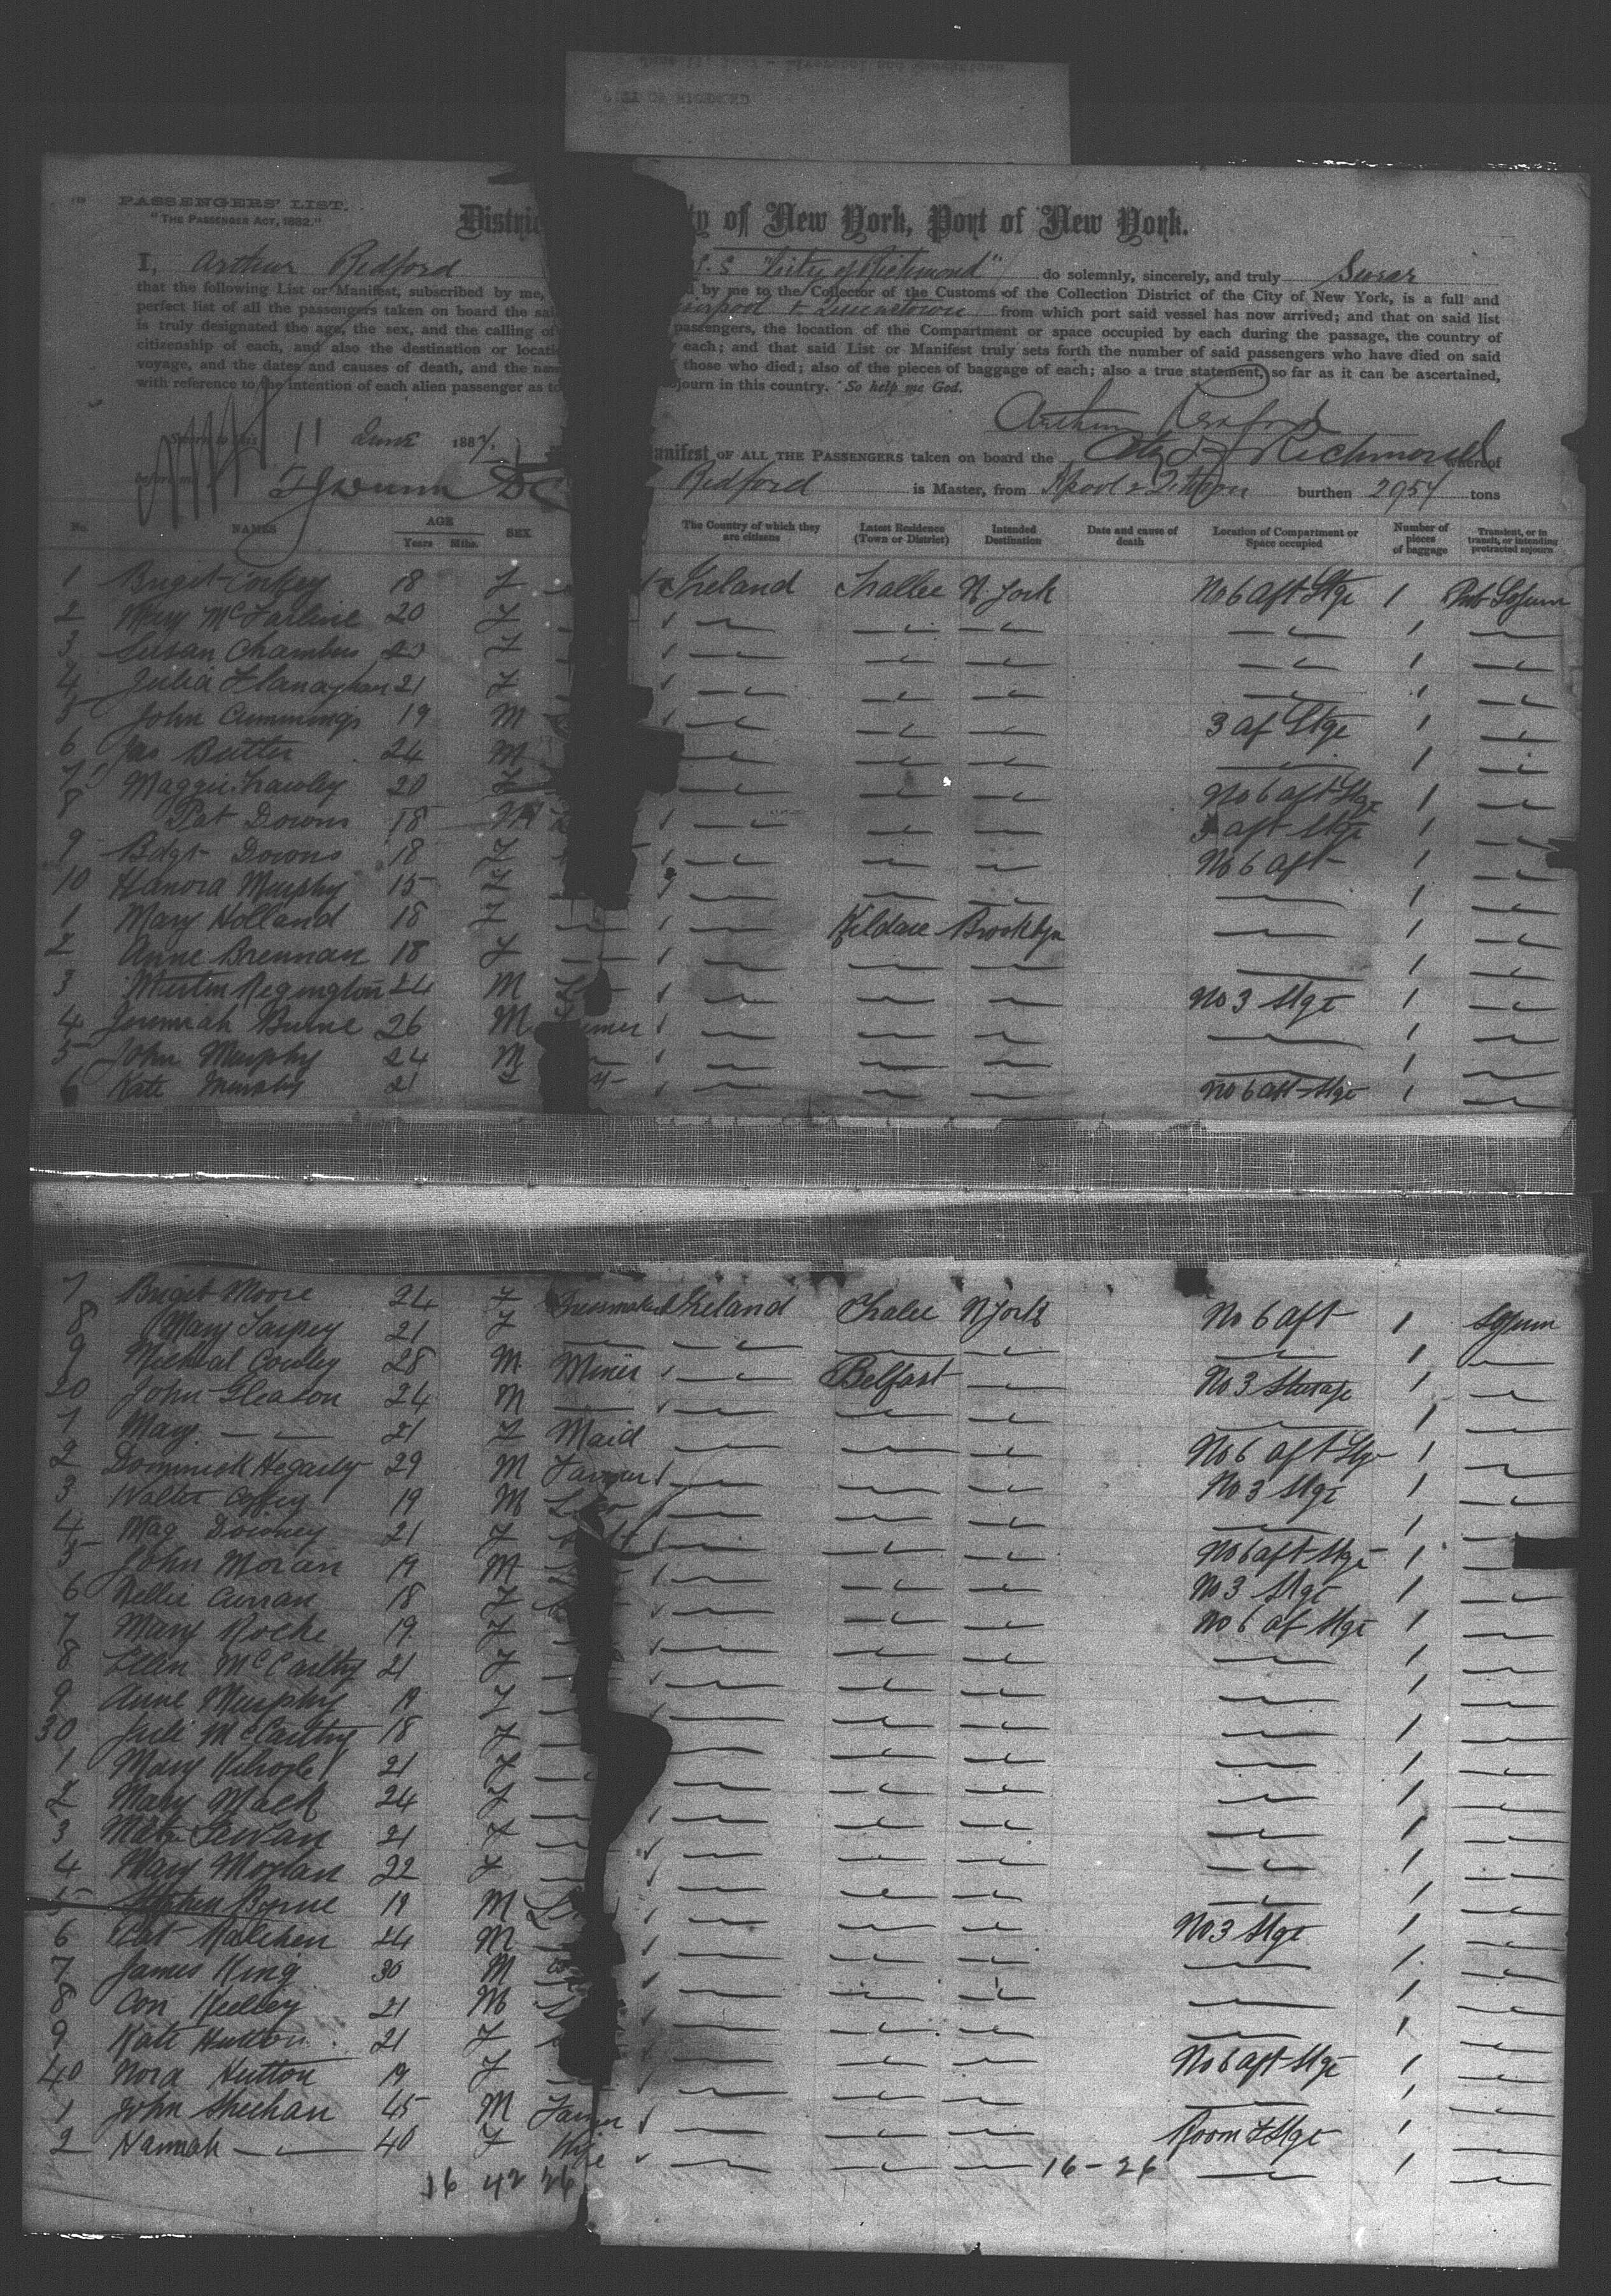 PASSENGERS' LIST.
"THE PASSENGER ACT, 1882."
Distric ty of New York, Port of New York.
I, Arthur Redford S.S "City of Richmond" do solemnly, sincerely, and truly Swear
that the following List or Manifest, subscribed by me, d by me to the Collector of the Customs of the Collection District of the City of New York, is a full and
perfect list of all the passengers taken on board the sai Liverpool & Queenstown from which port said vessel has now arrived; and that on said list
is truly designated the age, the sex, and the calling of passengers, the location of the Compartment or space occupied by each during the passage, the country of
citizenship of each, and also the destination or locati each; and that said List or Manifest truly sets forth the number of said passengers who have died on said
voyage, and the dates and causes of death, and the nam those who died; also of the pieces of baggage of each; also a true statement, so far as it can be ascertained,
with reference to the intention of each alien passenger as to journ in this country. So help me God.
Arthur Redford
11 June 1887.
anifest OF ALL THE PASSENGERS taken on board the City of Richmond whereof
Redford is Master, from Lpool & Qtown burthen 2957 tons
No. NAMES AGE Years Mths. SEX The Country of which they are citizens Latest Residence (Town or District) Intended Destination Date and cause of death Location of Compartment or Space occupied Number of pieces of baggage Transient, or in transit, or intending protracted sojourn
1 Brigit Corkey 18 F Ireland Tralee N York No 6 aft Stge 1
2 Mary McFarline 20 F 1
3 Susan Chambers 20 F 1
4 Julia Flanaghan 21 F 1
5 John Cummings 19 M 3 af Stge 1
6 Jas Butler 24 M 1
7 Maggie Frawley 20 F No 6 aft Stge 1
8 Pat Downs 18 M 3 aft Stge 1
9 Bdgt Downs 18 F No 6 aft 1
10 Hanora Murphy 15 F 1
1 Mary Holland 18 F Kildare Brooklyn 1
2 Anne Brennan 18 F 1
3 Martin Regington 24 M No 3 Stge 1
4 Jeremiah Burne 26 M 1
5 John Murphy 24 M 1
6 Kate Murphy 21 F No 6 aft Stge 1
7 Brigit Moore 24 F Dressmaker Ireland Tralee N York No 6 aft 1 Sojurn
8 Mary Tarpey 21 F 1
9 Micheal Cowley 28 M Miner Belfast No 3 Sterage 1
20 John Gleason 24 M 1
1 Mary 21 F Maid No 6 aft Stge 1
2 Dominick Hegarty 29 M Farmer No 3 Stge 1
3 Walter Coffey 19 M 1
4 Mag Downey 21 F No 6 aft Stge 1
5 John Moran 19 M No 3 Stge 1
6 Nellie Curran 18 F No 6 af Stge 1
7 Mary Roche 19 F 1
8 Ellen McCarthy 21 F 1
9 Anne Murphy 19 F 1
30 Juli McCarthy 18 F 1
1 Mary 21 F 1
2 Mary Mack 24 F 1
3 21 F 1
4 Mary Moylan 22 F 1
5 Stephen Byrne 19 M No 3 Stge 1
6 Pat 24 M 1
7 James King 30 M 1
8 Con 21 M 1
9 Kate Hutton 21 F No 6 aft Stge 1
40 Nora Hutton 19 F 1
1 John Sheehan 45 M Farmer Room F Stge 1
2 Hannah 40 F Wife 1
16 42 26 16-26